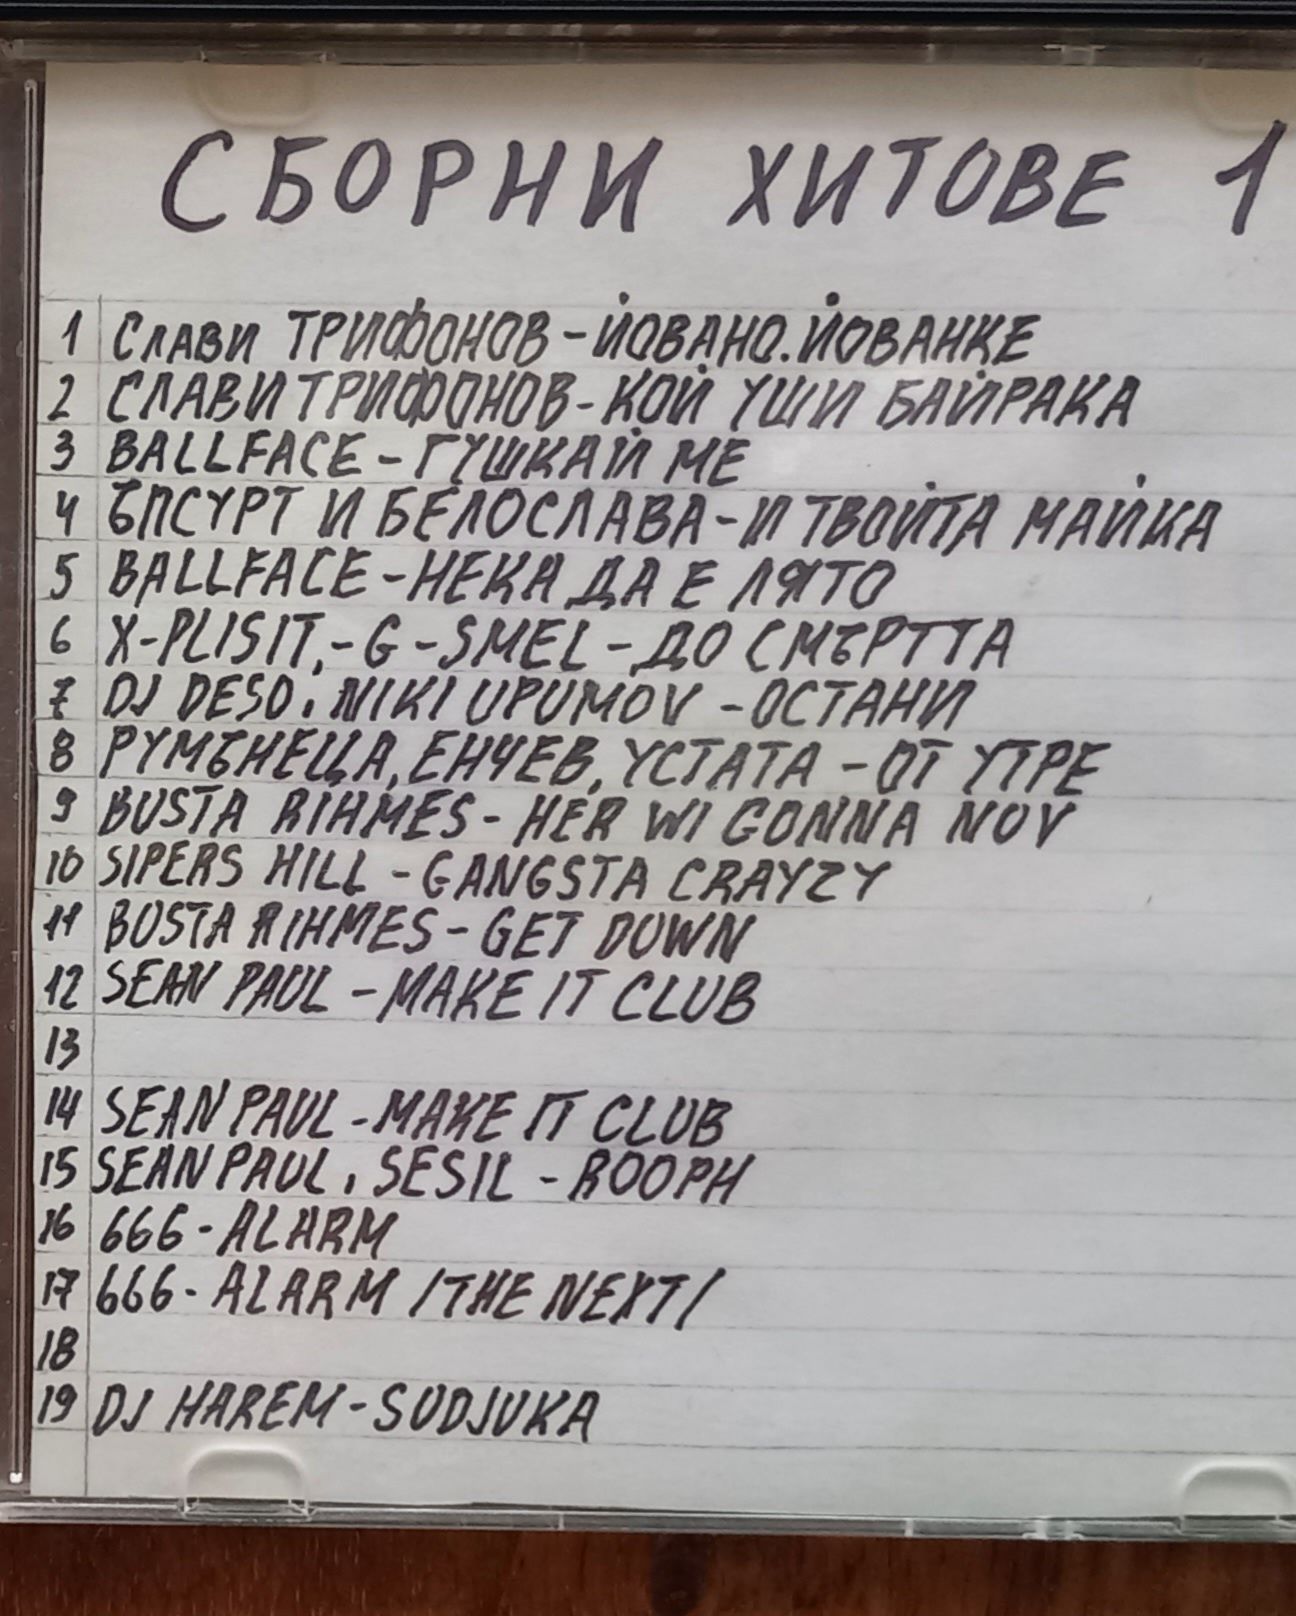 СБОРНИ ХИТОВЕ 1
1 СЛАВИ ТРИФОНОВ - ЙОВАНО. ЙОВАНКЕ
2 СЛАВИ ТРИФОНОВ - КОЙ УШИ БАЙРАКА
3 BALLFACE - ГУШКАЙ МЕ
4 ЪПСУРТ И БЕЛОСЛАВА - И ТВОЙТА МАЙКА
5 BALLFACE - НЕКА ДА Е ЛЯТО
6 X-PLISIT, - G - SMEL - ДО СМЪРТТА
7 DJ DESO, NIKI UPUMOV - ОСТАНИ
8 РУМЪНЕЦА, ЕНЧЕВ, УСТАТА - ОТ УТРЕ
9 BUSTA RIHMES - HER WI GONNA NOV
10 SIPERS HILL - GANGSTA CRAYZY
11 BOSTA RIHMES - GET DOWN
12 SEAN PAUL - MAKE IT CLUB
13
14 SEAN PAUL - MAKE IT CLUB
15 SEAN PAUL, SESIL - ROOPH
16 666 - ALARM
17 666 - ALARM /THE NEXT/
18
19 DJ HAREM - SUDJUKA